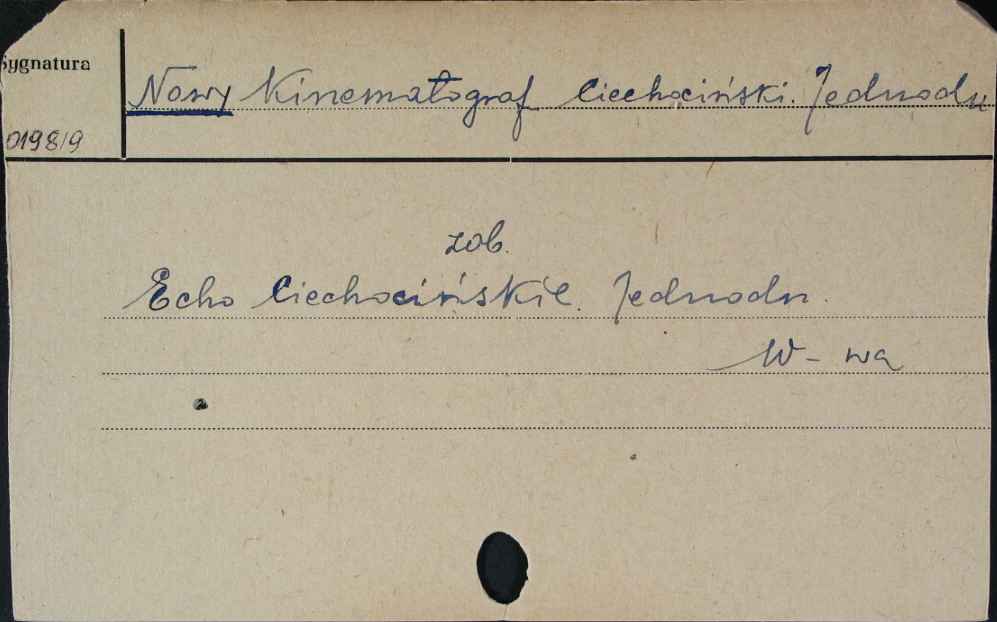 Sygnatura
Nowy Kinematograf Ciechociński. Jednodn
0198/9
zob.
Echo Ciechocińskie. Jednodn.
W-wa